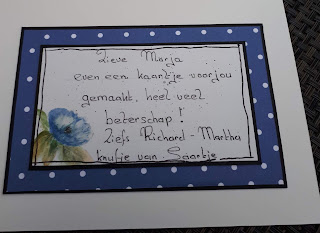 Lieve Marja
even een kaartje voor jou
gemaakt, heel veel
beterschap!
Liefs Richard - Martha
knufje van Saartje